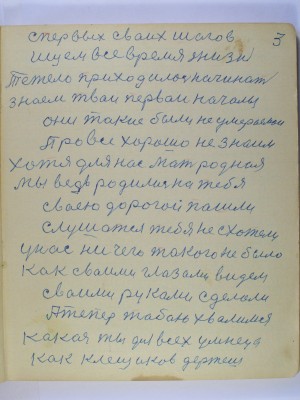 3
спервых своих шагов
ищем все время жизни
Тетело приходилос начинат
знаем тваи перваи началы
они такие были не умерением
Про все хорошо не знаим
хотя для нас мат родная
мы ведь родилис на тебя
сваею дорогой пашли
слушатся тебя не схотели
унас ни чего такого не было
как сваими глазами видем
сваими руками сделали
Атепер табаю хвалимся
какая ты для всех умнеца
как клещиков держеш